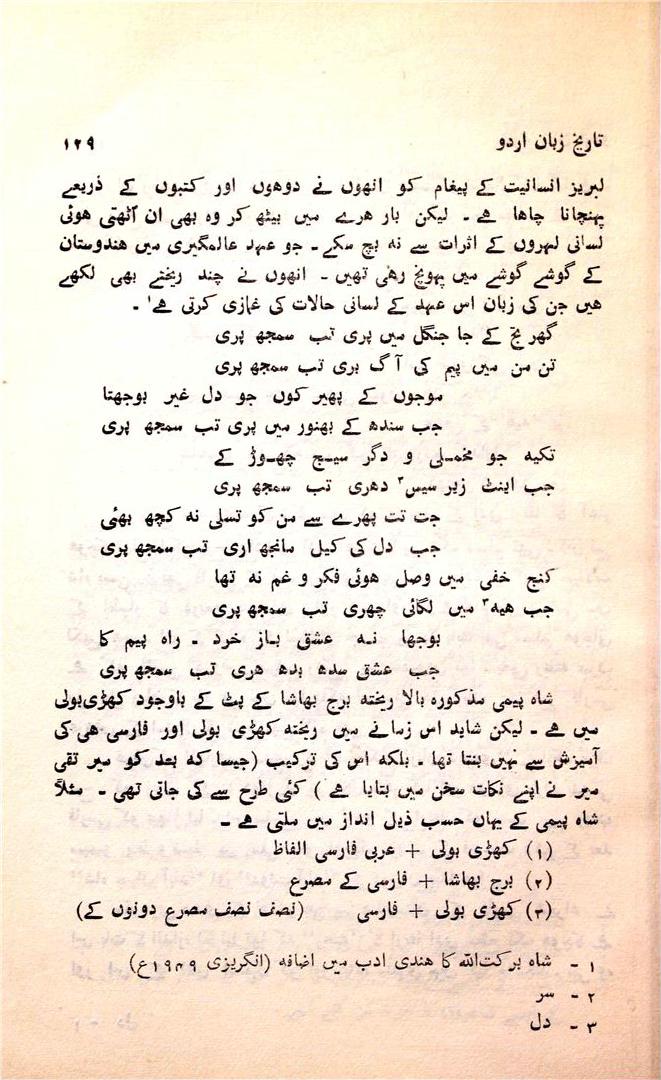 تاریخ زبان اردو
۱۲۹
لبریز انسانیت کے پیغام کو انھوں نے دوھوں اور کتبوں کے ذریعے
پہنچانا چاھا ہے ۔ لیکن بار ھرے میں بیٹھ کر وہ بھی ان اٹھتی ھوئی
لسانی لہروں کے اثرات سے نہ بچ سکے ۔ جو عہد عالمگیری میں ھندوستان
کے گوشے گوشے میں پہونچ رھی تھیں ۔ انھوں نے چند ریختے بھی لکھے
ھیں جن کی زبان اس عہد کے لسانی حالات کی غمازی کرتی ہے۱ ۔
گھر تج کے جا جنگل میں پری تب سمجھ پری
تن من میں پیم کی آگ بری تب سمجھ پری
موجوں کے پھیر کوں جو دل غیر بوجھتا
جب سندھ کے بھنور میں پری تب سمجھ پری
تکیہ جو مخملی و دگر سیج چھوڑ کے
جب اینٹ زیر سیس۲ دھری تب سمجھ پری
جت تت پھرے سے من کو تسلی نہ کچھ بھئی
جب دل کی کیل مانجھ اری تب سمجھ پری
کنج خفی میں وصل ھوئی فکر و غم نہ تھا
جب ھیہ۳ میں لگائی چھری تب سمجھ پری
بوجھا نہ عشق باز خرد ۔ راہ پیم کا
جب عشق سدھ بدھ ھری تب سمجھ پری
شاہ پیمی مذکورہ بالا ریختہ برج بھاشا کے پٹ کے باوجود کھڑی بولی
میں ہے ۔ لیکن شاید اس زمانے میں ریختہ کھڑی بولی اور فارسی ھی کی
آمیزش سے نہیں بنتا تھا ۔ بلکہ اس کی ترکیب (جیسا کہ بعد کو میر تقی
میر نے اپنے نکات سخن میں بتایا ہے) کئی طرح سے کی جاتی تھی ۔ مثلاً
شاہ پیمی کے یہاں حسب ذیل انداز میں ملتی ہے ۔
(۱) کھڑی بولی + عربی فارسی الفاظ
(۲) برج بھاشا + فارسی کے مصرع
(۳) کھڑی بولی + فارسی (نصف نصف مصرع دونوں کے)
۱ - شاہ برکت‌اللہ کا ھندی ادب میں اضافہ (انگریزی ۱۹۴۹ع)
۲ - سر
۳ - دل